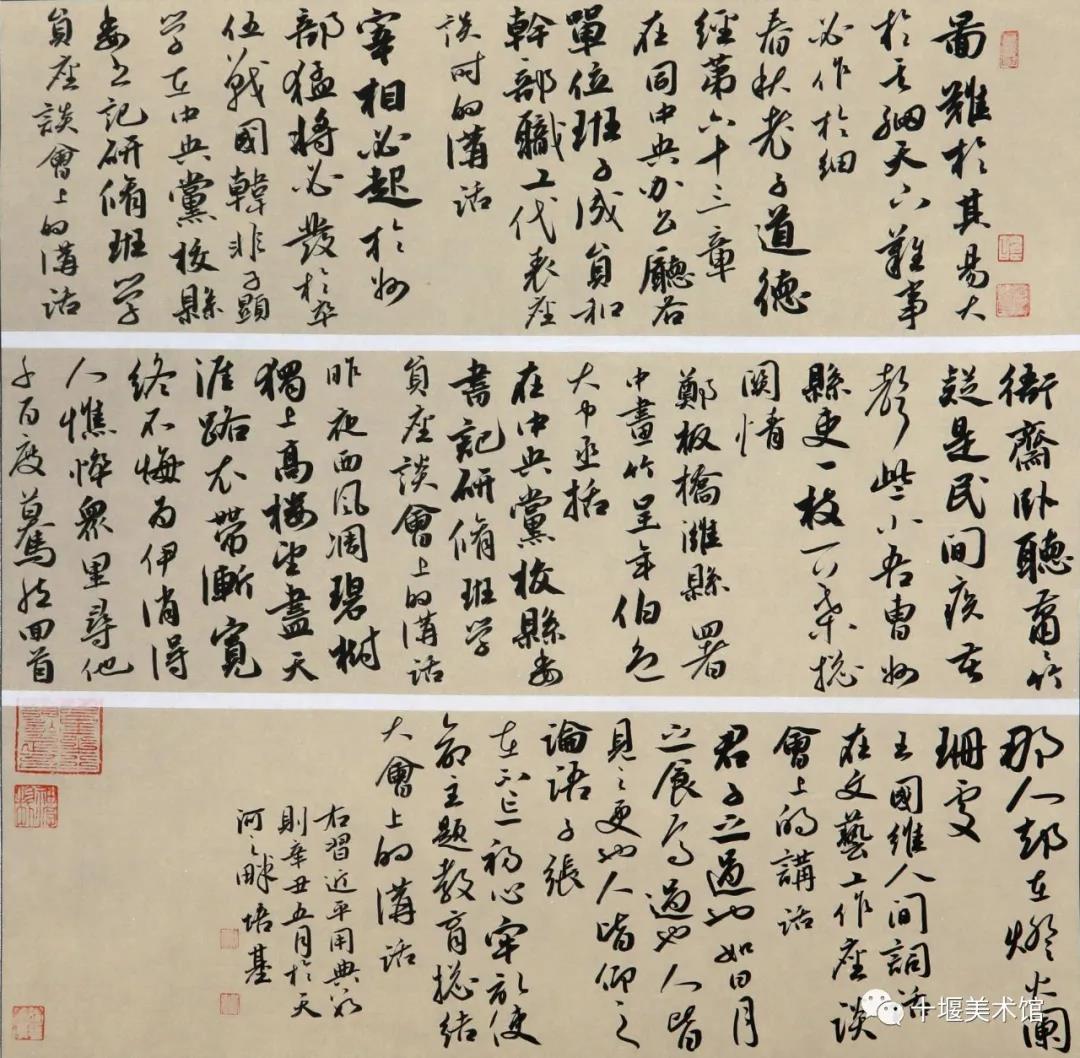 啚難於其易大
於其細天下難事
必作於細
春秋老子道德
經第六十三章
在同中央办公廳各
單位班子成員和
幹部職工代表座
談时的講话
宰相必起於州
部猛將必發於卒
伍戰國韓非子顯
学在中央黨校縣
委书記研脩班学
員座談會上的講话
衙齋卧聽蕭〻竹
疑是民间疾苦
聲些小吾曹州
縣吏一枝一葉總
関情
鄭板橋濰縣署
中畫竹呈年伯包
大中丞括
在中央黨校縣委
書記研脩班学
員座談會上的講话
昨夜西风凋碧树
獨上高楼望盡天
涯路衣帶漸寬
终不悔為伊消得
人憔悴眾里尋他
千百度驀然回首
那人却在燈火闌
珊處
王國維人间詞话
在文藝工作座談
會上的講话
君子之過也如日月
之食焉過也人皆
見之更也人皆仰之
論語子張
在不忘初心牢記使
命主題教育總结
大會上的講话
右習近平用典六
則辛丑五月於天
河之畔培基
十堰美术馆